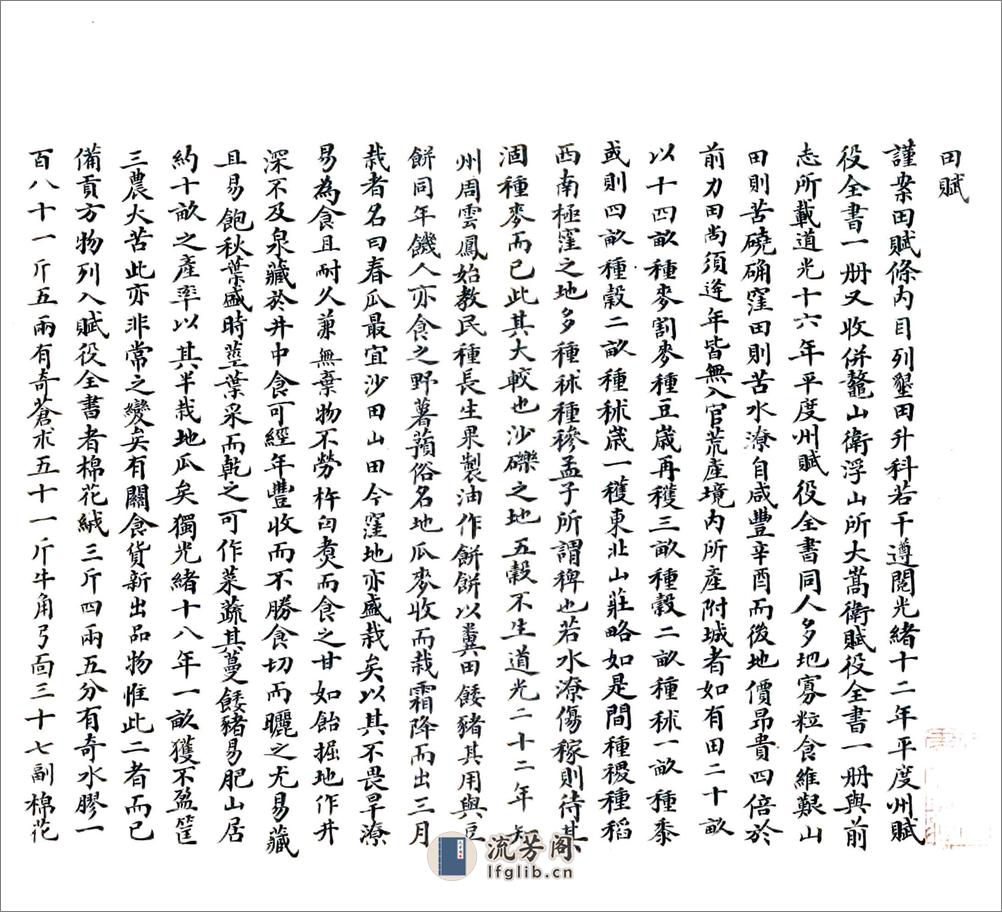 田賦
謹案田賦條內目列墾田升科若干遵閱光緒十二年平度州賦
役全書一册又收併鼇山衛浮山所大嵩衛賦役全書一册與前
志所載道光十六年平度州賦役全書同人多地寡粒食維艱山
田則苦磽确窪田則苦水潦自咸豐辛酉而後地價昂貴四倍於
前力田尚須逢年皆無入官荒產境內所產附城者如有田二十畝
以十四畝種麥割麥種豆歲再穫三畝種穀二畝種秫一畝種黍
或則四畝種穀二畝種秫歲一穫東北山莊略如是間種稷種稻
西南極窪之地多種秫種穇孟子所謂稗也若水潦傷稼則待其
涸種麥而已此其大較也沙礫之地五穀不生道光二十二年知
州周雲鳳始教民種長生果製油作餅餅以糞田餧豬其用與豆
餅同年饑人亦食之野薯蕷俗名地瓜麥收而栽霜降而出三月
栽者名曰春瓜最宜沙田山田今窪地亦盛栽矣以其不畏旱潦
易為食且耐久兼無棄物不勞杵臼煮而食之甘如飴掘地作井
深不及泉藏於井中食可經年豐收而不勝食切而曬之尤易藏
且易飽秋葉盛時莖葉采而乾之可作菜蔬其蔓餧豬易肥山居
約十畝之產率以其半栽地瓜矣獨光緒十八年一畝獲不盈筐
三農大苦此亦非常之變矣有關食貨新出品物惟此二者而已
備貢方物列入賦役全書者棉花絨三斤四兩五分有奇水膠一
百八十一斤五兩有奇蒼朮五十一斤牛角弓面三十七副棉花
流芳阁
lfglib.cn